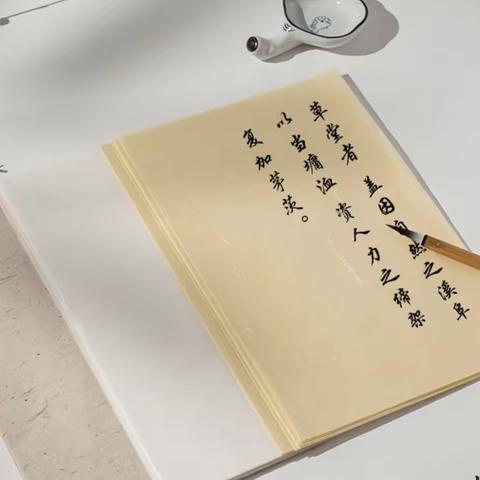 草堂者 盖因自然之溪阜
以当墉洫 资人力之缔架
复加茅茨。